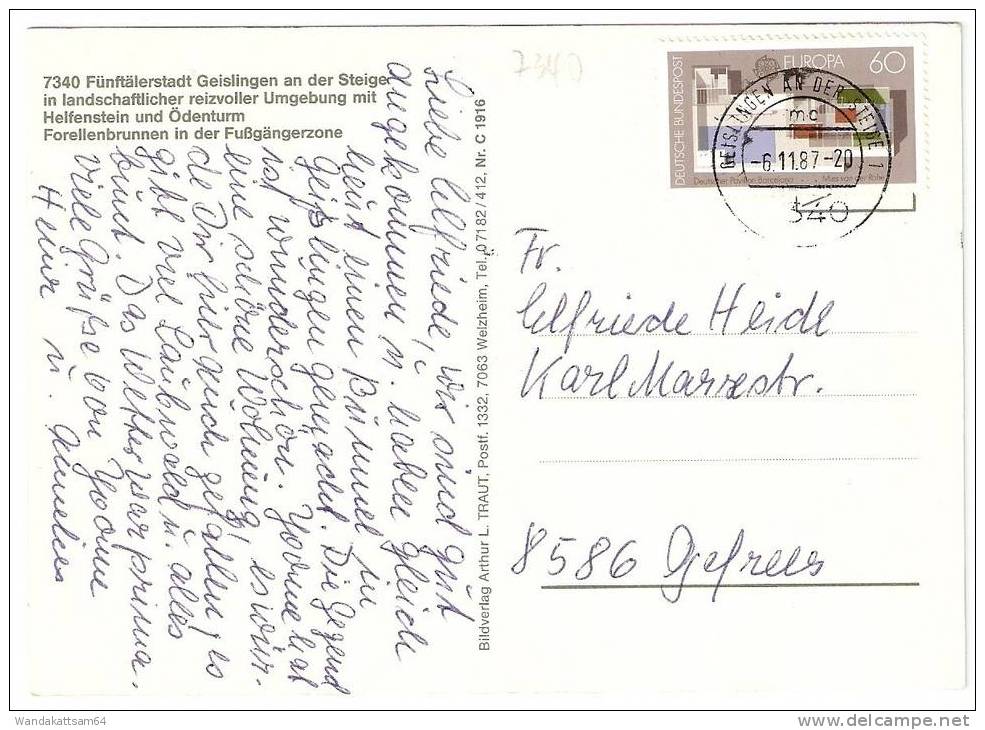 7340 Fünftälerstadt Geislingen an der Steige
in landschaftlicher reizvoller Umgebung mit
Helfenstein und Ödenturm
Forellenbrunnen in der Fußgängerzone
Liebe Elfriede, wir sind gut
angekommen u. haben gleich
heut einen Bummel in
Geißlingen gemacht. Die Gegend
ist wunderschön. Yvonne hat
eine schöne Wohnung, es wür-
de Dir hier auch gefallen, es
gibt viel Laubwald u. alles
bunt. Das Wetter war prima.
Viele Grüße von Yvonne
Heinr u. Annelies
Bildverlag Arthur L. TRAUT, Postf. 1332, 7063 Welzheim, Tel. 07182/412, Nr. C 1916
7340
DEUTSCHE BUNDESPOST
EUROPA 60
Deutscher Pavillon Barcelona Mies van der Rohe
GEISLINGEN AN DER STEIGE 1
mc
-6.11.87-20
7340
Fr.
Elfriede Heidl
Karl Marxestr.
8586 Gefrees
Wandakattsam64
www.delcampe.net